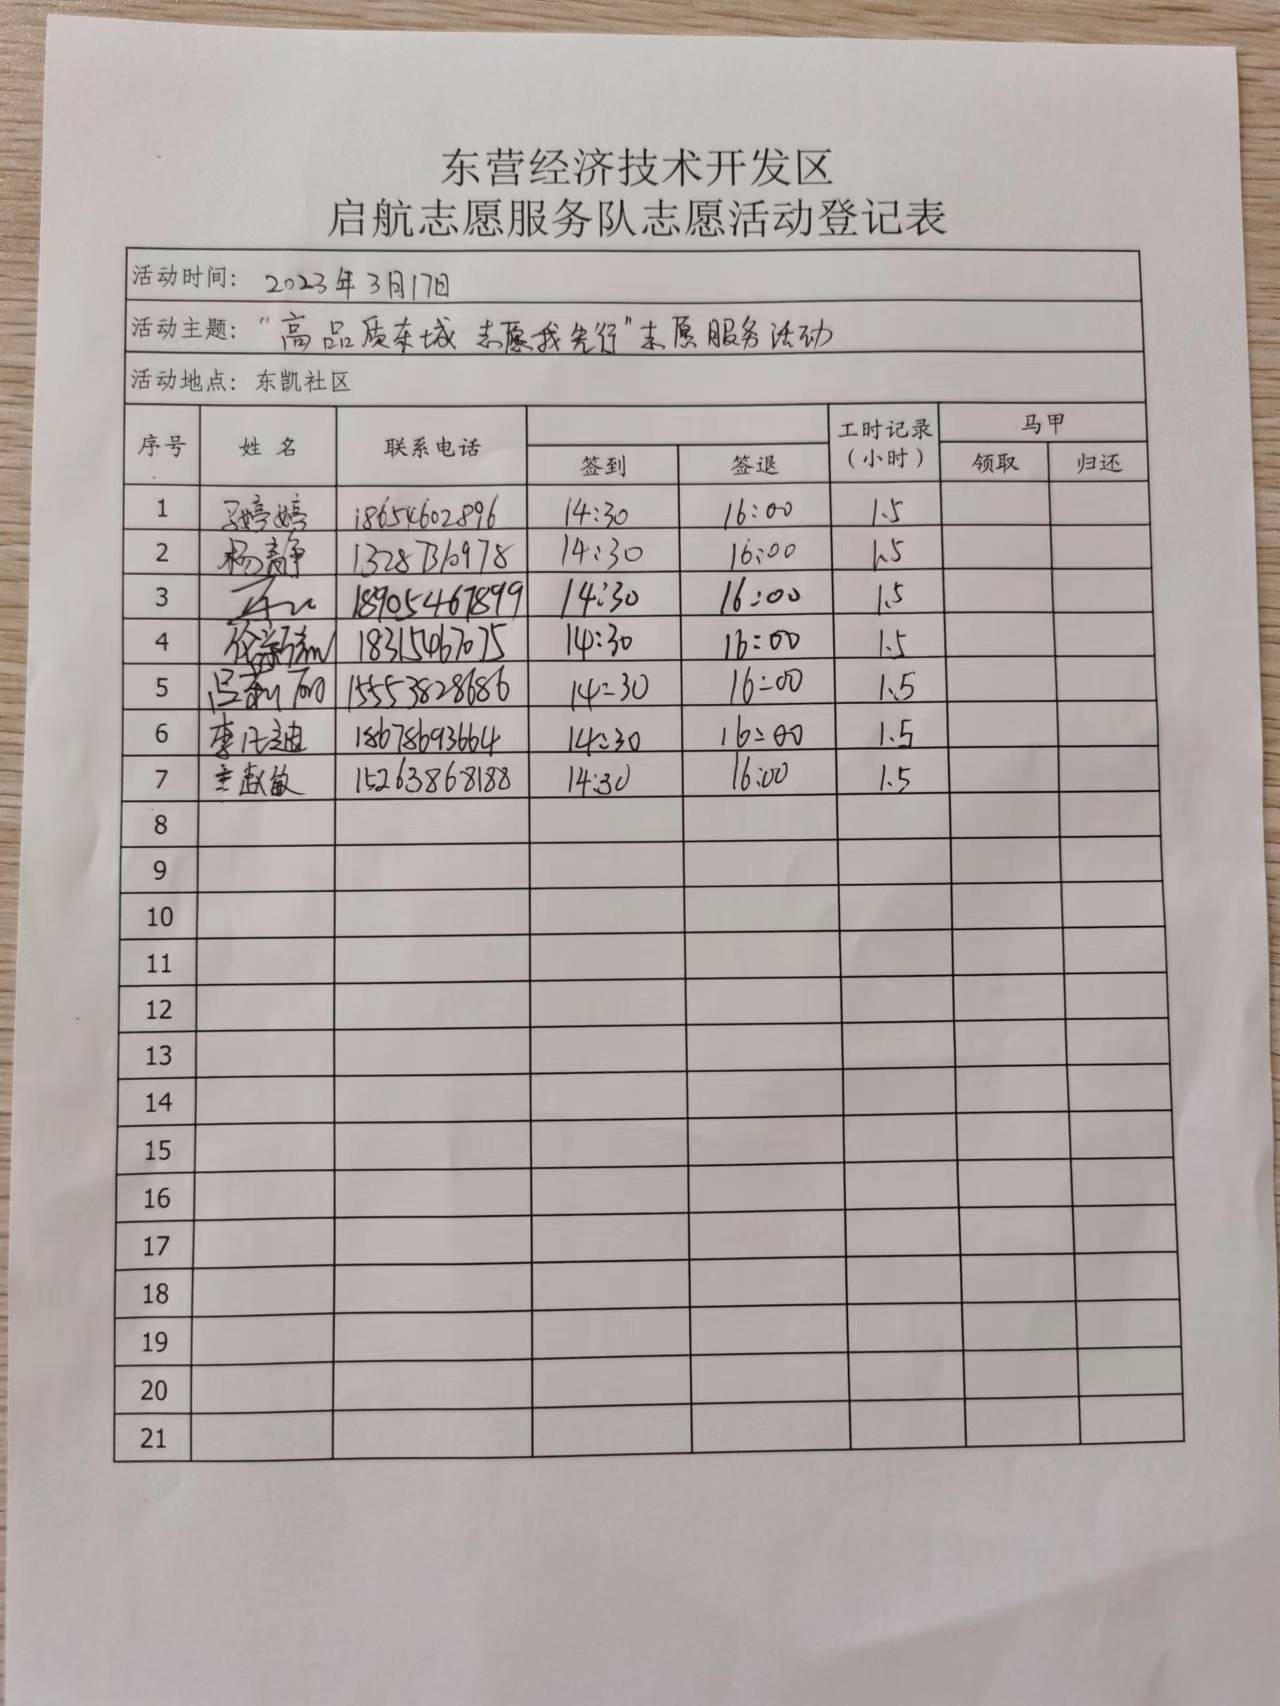 东营经济技术开发区
启航志愿服务队志愿活动登记表
活动时间: 2023年3月17日
活动主题: "高品质东城 志愿我先行"志愿服务活动
活动地点: 东凯社区
序号 姓名 联系电话 签到 签退 工时记录(小时) 马甲 领取 归还
1 婷婷 18654602896 14:30 16:00 1.5
2 杨静 14:30 16:00 1.5
3 18905467899 14:30 16:00 1.5
4 18315467075 14:30 16:00 1.5
5 15553828686 14:30 16:00 1.5
6 李 迪 18678693664 14:30 16:00 1.5
7 敏 15263868188 14:30 16:00 1.5
8
9
10
11
12
13
14
15
16
17
18
19
20
21